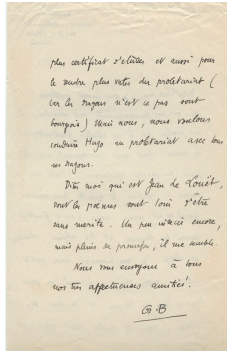 plus certificat d'études et aussi pour
le rendre plus vates du prolétariat (
Car les dragons n'est ce pas sont
bourgeois) Mais nous, nous voulons
conduire Hugo au prolétariat avec tous
ses dragons.
Dites moi qui est Jean de Louët,
dont les poèmes sont loin d'être
sans mérite. Un peu indécis encore,
mais pleins de promesses, il me semble.
Nous vous envoyons à tous
nos très affectueuses amitiés.
G.B